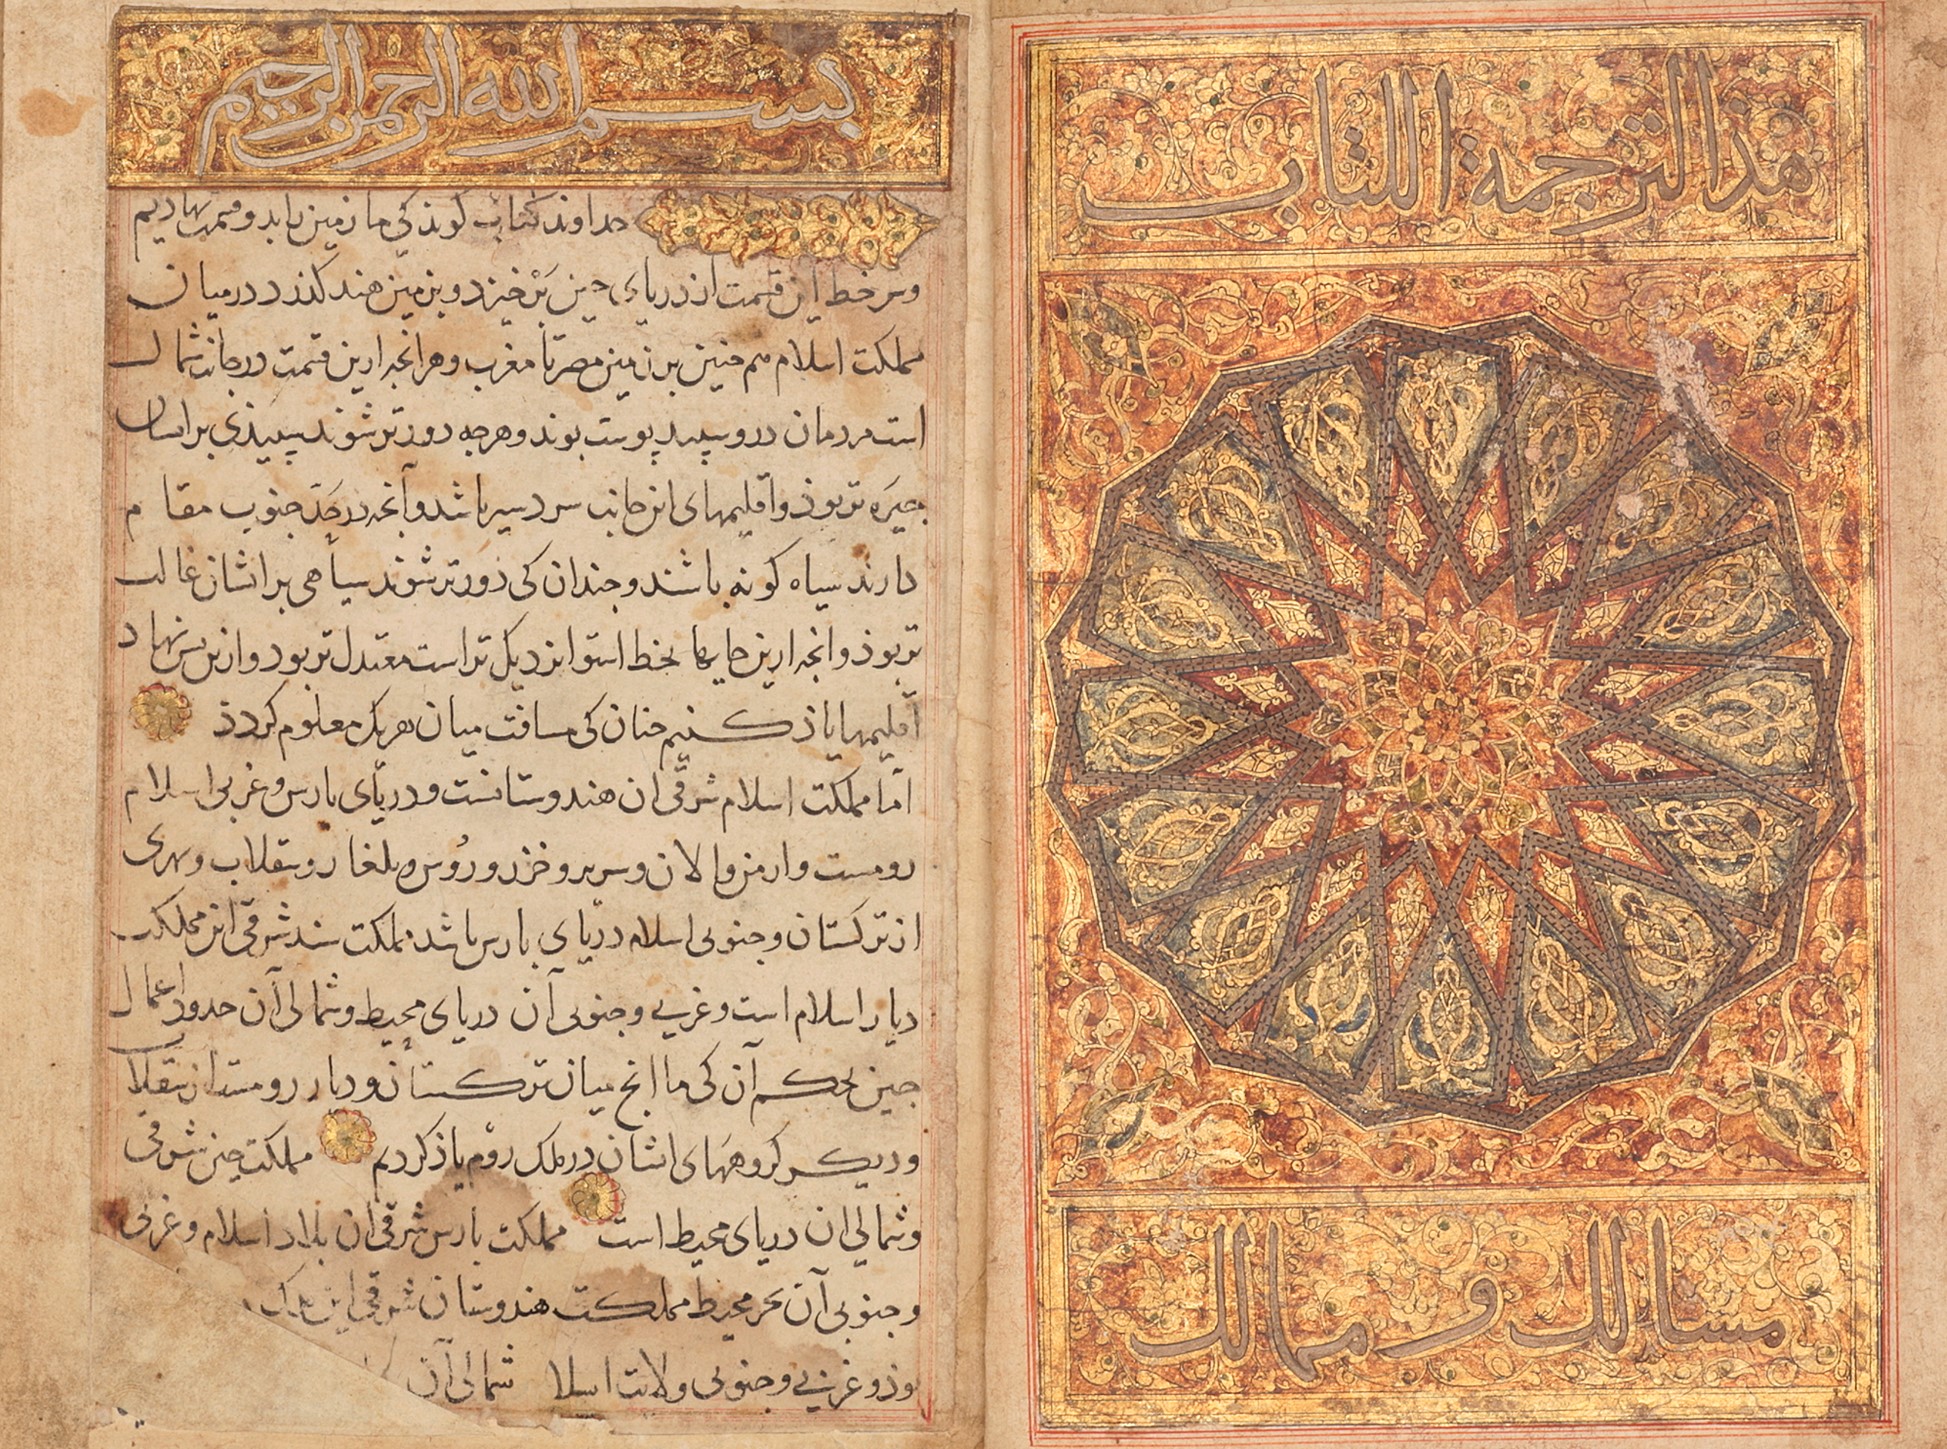 هذا الترجمة الكتاب
مسالك و ممالك
بسم الله الرحمن الرحيم
خداوند كتاب كويذ كى ما زمين بابد و قسمت نهاديم
وسر خط اين قسمت از درياى جين بر خيزد و بزمين هند كذرد در ميان
مملكت اسلام هم جنين بر زمين مصر تا مغرب وهر انجه ازين قسمت در جانب شمال
است مردمان درو سپيد پوست بوند وهرجه دورتر شوند سپيذى بر ايشان
جيره تر بوذ واقليمهاى اين جانب سردسير باشد وآنجه در حد جنوب مقام
دارند سياه كونه باشند وجندان كى دورتر شوند سياهى بر ايشان غالب
تر بوذ وانجه ازين جايكاه بخط استوا نزديك تر است معتدل تر بود وازين پس نهاد
اقليمها ياذ كنيم جنان كى مسافت ميان هر يك معلوم كردد
اما مملكت اسلام شرقى ان هندوستانست ودرياى پارس وغربى اسلام
رومست وارمن والان وسرير وخزر وروس وبلغار وسقلاب وبهرى
از تركستان وجنوبى اسلام درياى پارس باشد مملكت سند شرقى اين مملكت
ديار اسلام است وغربى وجنوبى آن درياى محيط وشمالى آن حدود اعمال
جين بحكم آن كى ما انج ميان تركستان وديار رومست از سقلاب
وديكر كروههاى ايشان در ملك روم ياذ كرديم مملكت جين شرقى
وشمالى ان درياى محيط است مملكت پارس شرقى ان بلاد اسلام وغربى
وجنوبى آن بحر محيط مملكت هندوستان شرقى اين
وذ وغربى وجنوبى ولايت اسلا شمالى آن